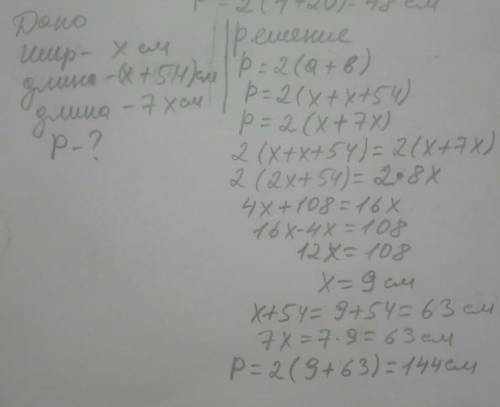 P = 2(4+20) = 48 см
Дано
шир - x см
длина - (x+54) см
длина - 7x см
P - ?
решение
P = 2(a+в)
P = 2(x+x+54)
P = 2(x+7x)
2(x+x+54) = 2(x+7x)
2(2x+54) = 2•8x
4x+108 = 16x
16x-4x = 108
12x = 108
x = 9 см
x+54 = 9+54 = 63 см
7x = 7·9 = 63 см
P = 2(9+63) = 144 см